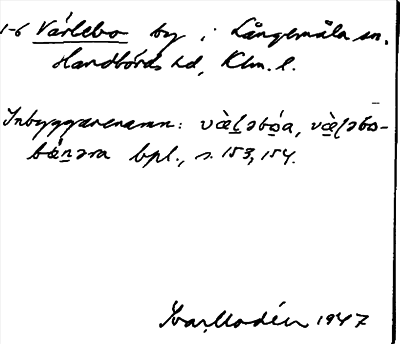 1-6 Värlebo by i Långemåla sn.
Handbörds hd, Klm. l.
Inbyggarenamn: vὰḻəbo̱a, vὰḷəbo-
bǿṉəra bpl., s. 153, 154.
Ivar Modéer 1947